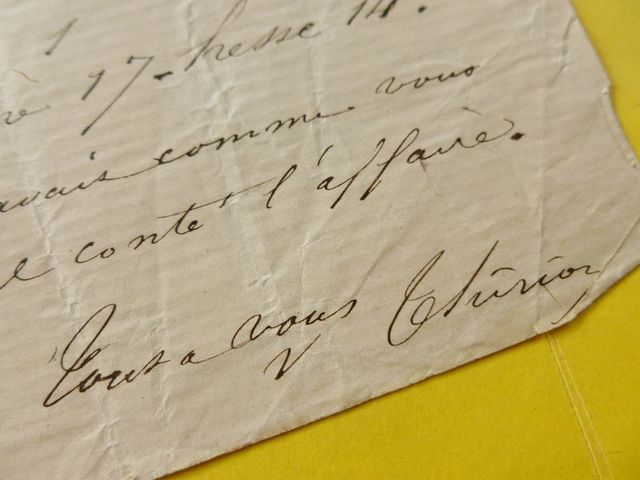 1
re 17. hesse 14.
avais comme vous
el conté l'affaire.
Tout a vous Thirion